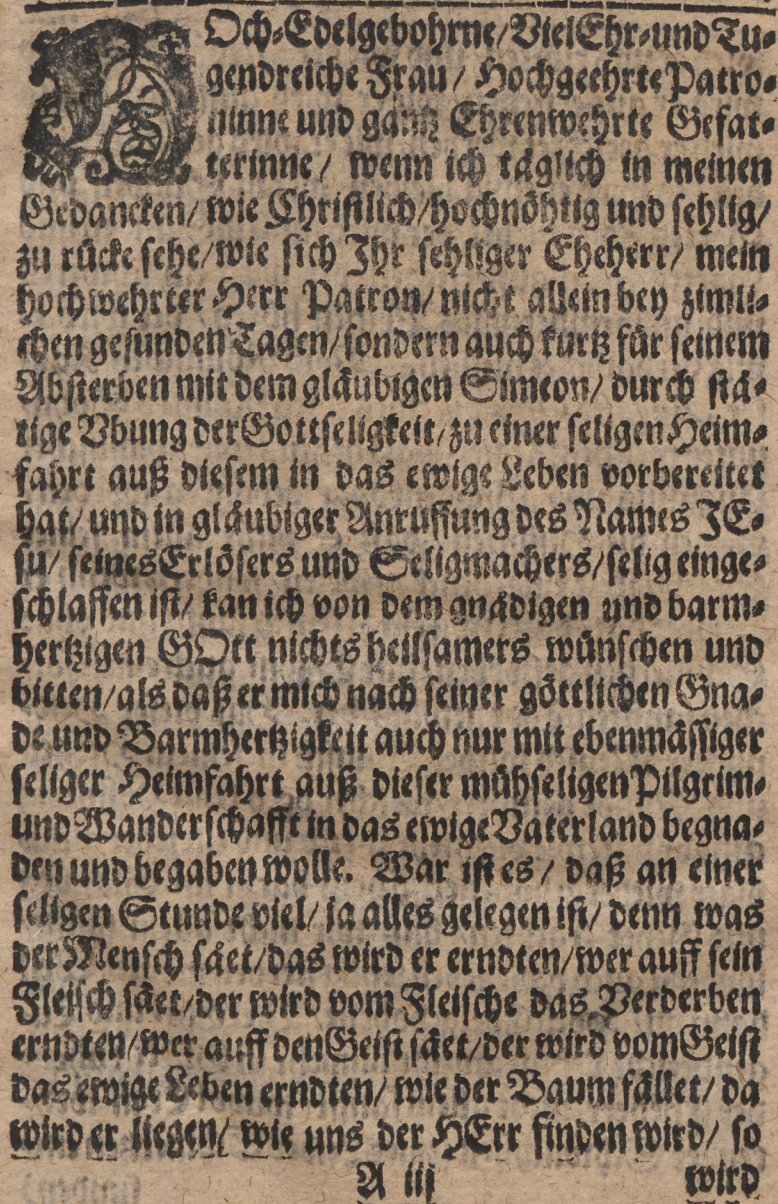 HOch-Edelgebohrne/VielEhr-und Tu-
gendreiche Frau/ Hochgeehrte Patro-
ninne und gantz Ehrenwehrte Gefat-
terinne/ wenn ich täglich in meinen
Gedancken/ wie Christlich/hochnöhtig und sehlig/
zu rücke sehe/wie sich Jhr sehliger Eheherr/ mein
hochwehrter Herr Patron/ nicht allein bey zimli-
chen gesunden Tagen/sondern auch kurtz für seinem
Absterben mit dem gläubigen Simeon/ durch stä-
tige Vbung der Gottseligkeit/zu einer seligen Heim-
fahrt auß diesem in das ewige Leben vorbereitet
hat/ und in gläubiger Anruffung des Names JE-
su/ seines Erlösers und Seligmachers/selig einge-
schlaffen ist/ kan ich von dem gnädigen und barm-
hertzigen GOtt nichts heilsamers wünschen und
bitten/als daß er mich nach seiner göttlichen Gna-
de und Barmhertzigkeit auch nur mit ebenmässiger
seliger Heimfahrt auß dieser mühseligen Pilgrim-
und Wanderschafft in das ewige Vaterland begna-
den und begaben wolle. War ist es/ daß an einer
seligen Stunde viel/ ja alles gelegen ist/ denn was
der Mensch säet/das wird er erndten/wer auff sein
Fleisch säet/der wird vom Fleische das Verderben
erndten/wer auff den Geist säet/der wird vom Geist
das ewige Leben erndten/ wie der Baum fället/ da
wird er liegen/ wie uns der HErr finden wird/ so
A iij wird